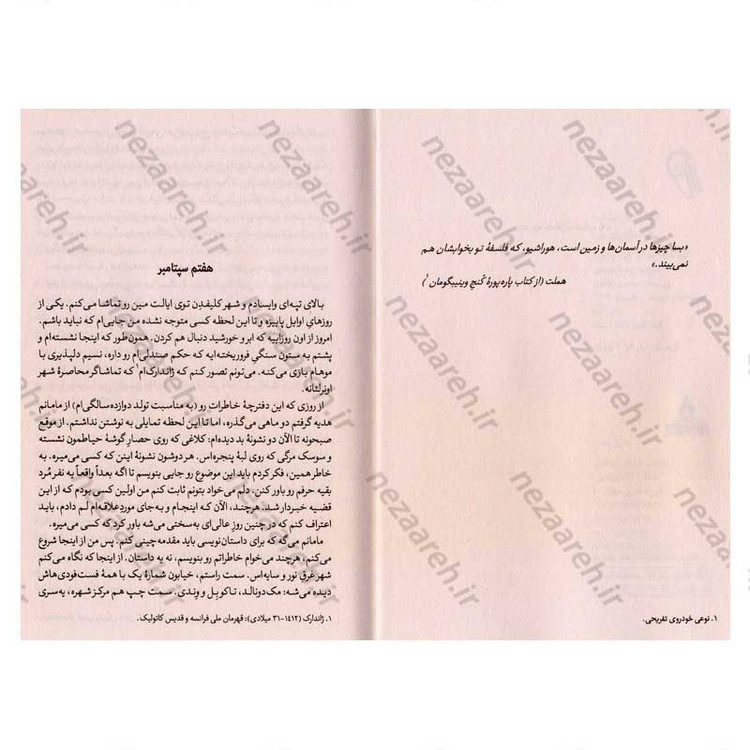 «بسا چیزها در آسمان‌ها و زمین است، هوراشیو، که فلسفهٔ تو بخوابشان هم
نمی‌بیند.»
هملت (از کتاب پاره‌پورهٔ کُنجِ وینیبگومان ۱)
۱. نوعی خودروی تفریحی.
هفتم سپتامبر
بالای تپه‌ای وایسادم و شهر کلیفدِن توی ایالت مین رو تماشا می‌کنم. یکی از
روزهای اوایل پاییزه و تا این لحظه کسی متوجه نشده من جایی‌ام که نباید باشم.
امروز از اون روزاییه که ابر و خورشید دنبال هم کردن. همون‌طور که اینجا نشسته‌ام و
پشتم به ستون سنگیِ فروریخته‌ایه که حکم صندلی‌ام رو داره، نسیم دلپذیری با
موهام بازی می‌کنه. می‌تونم تصور کنم که ژاندارک‌ام۱ که تماشاگر محاصرهٔ شهر
اورلئانه.
از روزی که این دفترچهٔ خاطرات رو (به مناسبت تولد دوازده‌سالگی‌ام) از مامانم
هدیه گرفتم دو ماهی می‌گذره، اما تا این لحظه تمایلی به نوشتن نداشتم. از موقع
صبحونه تا الآن دو نشونهٔ بد دیده‌ام: کلاغی که روی حصارِ گوشهٔ حیاطمون نشسته
و سوسک مرگی که روی لبهٔ پنجره‌اس. هر دوشون نشونهٔ اینن که کسی می‌میره. به
خاطر همین، فکر کردم باید این موضوع رو جایی بنویسم تا اگه بعداً واقعاً یه نفر مُرد
بقیه حرفم رو باور کنن. دلم می‌خواد بتونم ثابت کنم من اولین کسی بودم که از این
قضیه خبردار شد. هرچند، الآن که اینجام و به‌جای موردعلاقه‌ام لم دادم، باید
اعتراف کنم که در چنین روز عالی‌ای به‌سختی می‌شه باور کرد که کسی می‌میره.
مامانم می‌گه که برای داستان‌نویسی باید مقدمه‌چینی کنم. پس من از اینجا شروع
می‌کنم، هرچند می‌خوام خاطراتم رو بنویسم، نه یه داستان. از اینجا که نگاه می‌کنم
شهر غرق نور و سایه‌اس. سمت راستم، خیابون شمارهٔ یک با همهٔ فست‌فودی‌هاش
دیده می‌شه: مک‌دونالد، تاکوبِل و وِندی. سمت چپ هم مرکز شهره، یه‌سری
۱. ژاندارک (۱۴۱۲-۳۱ میلادی): قهرمان ملی فرانسه و قدیس کاتولیک.
nezaareh.ir